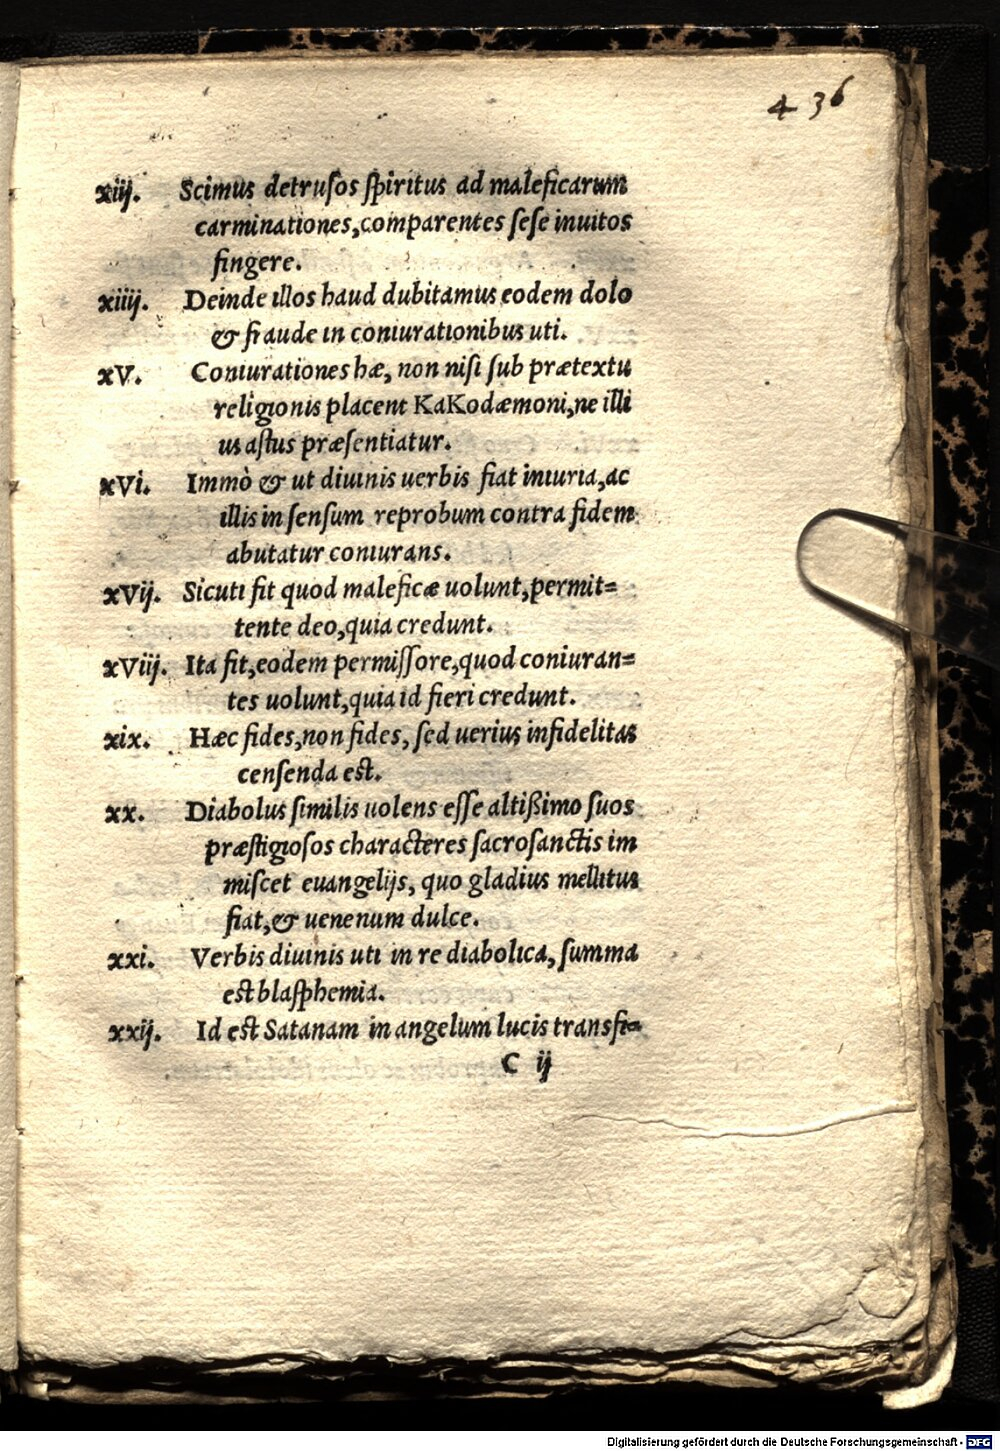 436
xiij. Scimus detrusos spiritus ad maleficarum
carminationes,comparentes sese inuitos
fingere.
xiiij. Deinde illos haud dubitamus eodem dolo
& fraude in coniurationibus uti.
xV. Coniurationes hæ, non nisi sub prætextu
religionis placent KaKodæmoni,ne illi
us astus præsentiatur.
xVi. Immò & ut diuinis uerbis fiat iniuria,ac
illis in sensum reprobum contra fidem
abutatur coniurans.
xVij. Sicuti fit quod maleficæ uolunt,permit=
tente deo,quia credunt.
xViij. Ita fit,eodem permissore,quod coniuran=
tes uolunt,quia id fieri credunt.
xix. Hæc fides,non fides, sed uerius infidelitas
censenda est.
xx. Diabolus similis uolens esse altißimo suos
præstigiosos characteres sacrosanctis im
miscet euangelijs, quo gladius mellitus
fiat,& uenenum dulce.
xxi. Verbis diuinis uti in re diabolica, summa
est blasphemia.
xxij. Id est Satanam in angelum lucis transfi=
C ij
Digitalisierung gefördert durch die Deutsche Forschungsgemeinschaft - DFG